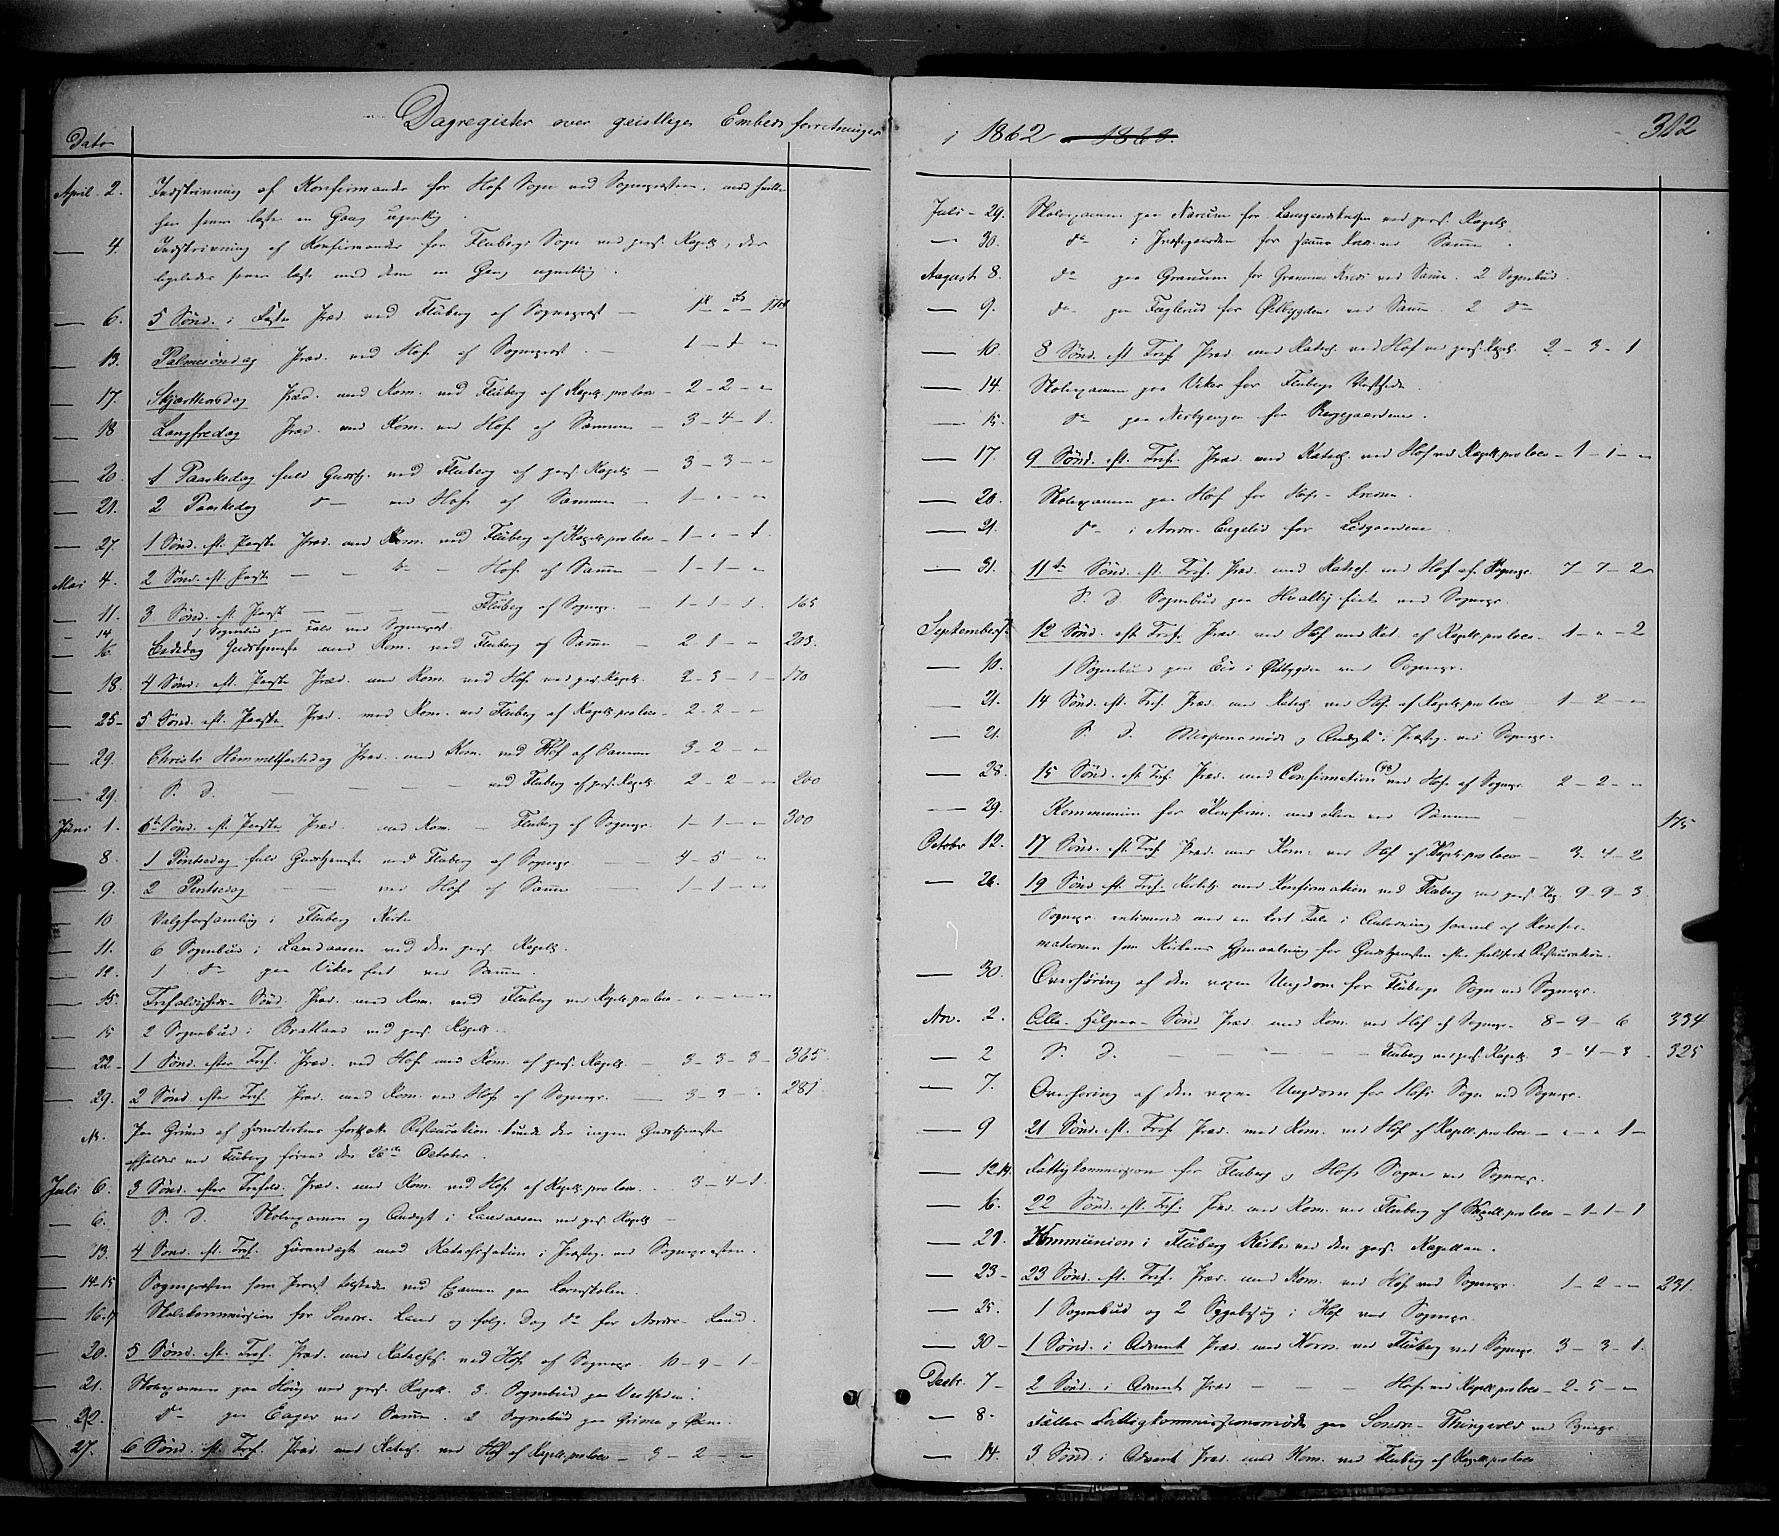 Dagregister over geistlige Embedsforretninger
Dato
April 2. Indskrivning af Konfirmander for Hof Sogn ved Sognepræsten, med hvilke
han siden læste en Gang ugentlig.
4. Indskrivning af Konfirmander for Fluberg Sogn ved pers. Kapell., der
ligeledes siden læste med dem en Gang ugentlig.
6. 5 Sønd. i Faste Præd. ved Fluberg af Sognepræst
13. Palmesøndag Præd. ved Hof af Sognepræst 1 - 1 - "
17. Skjærthorsdag Præd. med Kom. ved Fluberg af Kapell. pro loco - 2 - 2 - "
18 Langfredag Præd. med Kom. ved Hof af Samme 3 - 4 - 1.
20. 1 Paaskedag fuld Gudstj. ved Fluberg af pers. Kapell. 3 - 3 - "
21. 2 Paaskedag do ved Hof af Samme 1 - " - "
27. 1 Sønd. eft. Paaske Præd. med Kom. ved Fluberg af Kapell. pro loco - 1 - " - 1.
Mai 4. 2 Sønd. eft. Paaske — — do — Hof af Samme 1 - 1 - "
11. 3 Sønd. eft. Paaske — — — Fluberg af Sognepr. 1 - 1 - 1. 165
14 1 Sognebud paa Fald ved Sognepræst.
16. Bededag Gudstjeneste med Kom. ved Fluberg af Samme 2 1 - " 203.
18. 4 Sønd. eft. Paaske Præd. med Kom. ved Hof ved pers. Kapell. 2 - 3 - 1 - 170
25 - 5 Sønd. eft. Paaske Præd. med Kom. ved Fluberg af Kapell. pro loco - 2 - 2 - "
29. Christi Himmelfartsdag Præd. med Kom. ved Hof af Samme 3 - 2 - "
29. S. D. — — — — ved Fluberg af pers. Kapell. 2 - 2 - " 200
Juni 1. 6te Sønd. eft. Paaske Præd. med Kom. — Fluberg af Sognepr. 1 - 1 - " 300
8. 1 Pintsedag fuld Gudstjeneste ved Fluberg af Sognepr. 4 - 5 "
9. 2 Pintsedag — — ved Hof af Samme 1 - 1 - "
10 Valgforsamling i Fluberg Kirke
11. 6 Sognebud i Landaasen ved den pers. Kapell.
12. 1 do paa Viken ved Samme.
15. Trefoldigheds-Sønd. Præd. med Kom. ved Fluberg ved Kapell. pro loco - " - " - "
15 2 Sognebud i Bratland ved pers. Kapell.
22 - 1 Sønd. efter Tref. Præd. ved Hof med Kom. af pers. Kapell. 3 - 3 - 3 - 365
29. 2 Sønd efter Tref. Præd. med Kom. ved Hof af Sognepr. 3 - 3 - . 281
N. Paa Grund af fortsatte Restauration kunde der ingen Gudstjeneste
afholdes ved Fluberg førend den 26de October.
Juli 6. 3 Sønd. efter Trefold. Præd. med Kom. ved Hof af Kapell. pro loco. 3 - 4 - 1.
6. S. D. Skolexamen og Andagt i Landaasen ved pers. Kapell. —
13. 4 Sønd. eft. Tref. med Katechisation i Præsteg. ved Sognepræsten.
14-15 Sognepræsten som Provst ved Examen paa
16.17 Skolekommission for Søndre Land og følg. Dag do for Nordre Land.
20. 5 Sønd. eft. Tref. Præd. med Katechis. ved Hof af Sognepr. 10 - 9 - 1 -
21. Skolexamen paa Houg ved pers. Kapell. 3 Sognebud paa Vestsiden.
22. do paa Enger ved Samme. 2 Sognebud paa Grime og
27. 6 Sønd. eft. Tref. Præd. med Katech. ved Hof af Kapell. pro loco - 3 - 2 - -
i 1862 1860. 312
Juli - 29. Skolexamen paa Narum for ved pers. Kapell.
— 30. do i Præstegaarden for ved Samme.
August 8. do paa Granum for Granum Kreds ved Samme. 2 Sognebud.
— 9. do paa Faglerud for Østbygden ved Samme. 2 do
— 10. 8 Sønd. eft. Tref. Præd. med Katech. ved Hof ved pers. Kapell. 2 - 3 - 1
— 14. Skolexamen paa Viken for Flubergs Vestside.
— 15. do paa for
— 17. 9 Sønd. eft. Tref. Præd. med Katech. ved Hof ved Kapell. pro loco - 1 - 1 - "
— 20. Skolexamen paa Hof for Hofs-Kredsen.
— 21. do i Nordre Engelid for
— 31. 11te Sønd. eft. Tref. Præd. med Katech. ved Hof af Sognepr. 7 - 7 - 2
S. D Sognebud paa Hvalby ved Sognepr.
September 12 Sønd. eft. Tref. Præd. ved Hof med Kat. af Kapell. pro loco - 1 - " - 2
— 10. 1 Sognebud paa Eid i Østbygden ved Sognepr.
— 21. 14 Sønd. eft. Tref. Præd. med Katech. ved Hof af Kapell. pro loco 1 - 2 - "
— 21. S. D. Missionsmøde og Andagt i Præsteg. ved Sognepr.
— 28. 15 Sønd. eft. Tref. Præd. med Confirmation (48) ved Hof af Sognepr. 2 - 2 - "
— 29. Kommunion for Konfirm. med flere ved Samme — 175
October 12. 17 Sønd. eft. Tref. Præd. med Kom. ved Hof af Kapell. pro loco - 3 - 4 - 2
— 26. 19 Sønd. eft. Tref. med Konfirmation ved Fluberg ved pers. Kap. 9 - 9 - 3.
Sognepr. med en kort Tale i Anledning saavel af Konfir-
mationen som Kirkens Gjenaabning for Gudstjenesten efter fuldført Restauration.
— 30. Overhøring af den voxne Ungdom for Flubergs Sogn ved Sognepr.
Nov. 2. Alle Helgens-Sønd Præd. med Kom. ved Hof af Sognepr. 8 - 9 - 6 334
— 2 S. D. — — — — Fluberg ved pers. Kapell. 3 - 4 - 3 - 325
— 7. Overhøring af den voxne Ungdom for Hofs Sogn ved Sognepr.
— 9 21 Sønd. eft. Tref Præd. med Kom. ved Hof af Kapell. pro loco - " - " 1 -
— 12.14. Fattigkommission for Fluberg og Hofs Sogne ved Sognepr.
— 16. 22 Sønd. eft. Tref. Præd. med Kom. ved Fluberg af Kapell. pro loco - 1 - 1 - 1
— 21 Kommunion i Fluberg Kirke ved den pers. Kapellan.
— 23 - 23 Sønd. eft. Tref. Præd. med Kom. ved Hof ved Sognepr. 1 - 2 - - 231.
— 25. 1 Sognebud og 2 Sygebesøg i Hof ved Sognepr.
— 30 - 1 Sønd. i Advent Præd. med Kom. ved Fluberg ved Sognepr. 3 - 3 - 1.
Decbr. 7 - 2 Sønd. i Advent Præd — — — Hof ved Kapell. pro loco - 2 - 5 - "
— 8. Fælles Fattigkommissionsmøde paa Søndre Thingvold ved Sognepr.
— 14. 3 Sønd. i Advent Præd. med Kom. ved Fluberg af Kapell. pro loco